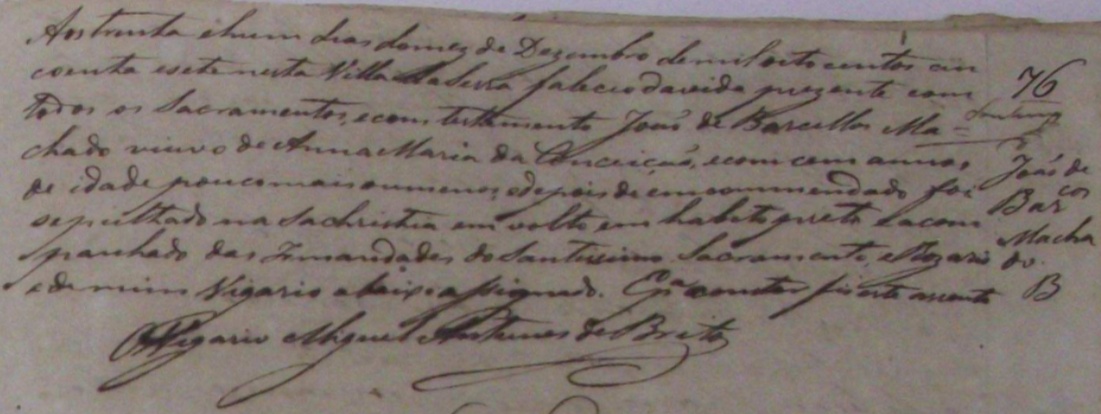 Aos trinta e hum dias do mez de Dezembro de mil oito centos cin
coenta e sete nesta Villa da Serra faleceo da vida prezente com
todos os Sacramentos, e com testamento João de Barcellos Ma=
chado viuvo de Anna Maria da Conceição, e com cem annos
de idade pouco mais ou menos, e depois de emcommendado foi
sepultado na Sachristia em volto em habito preto e acom
panhado das Irmandades do Santissimo Sacramento, e Rozario
e de mim Vigario abaixo assignado. E pa constar fiz este assento
O Vigario Miguel Antunes de Brito
76
João de
Barcos
Macha
do.
B